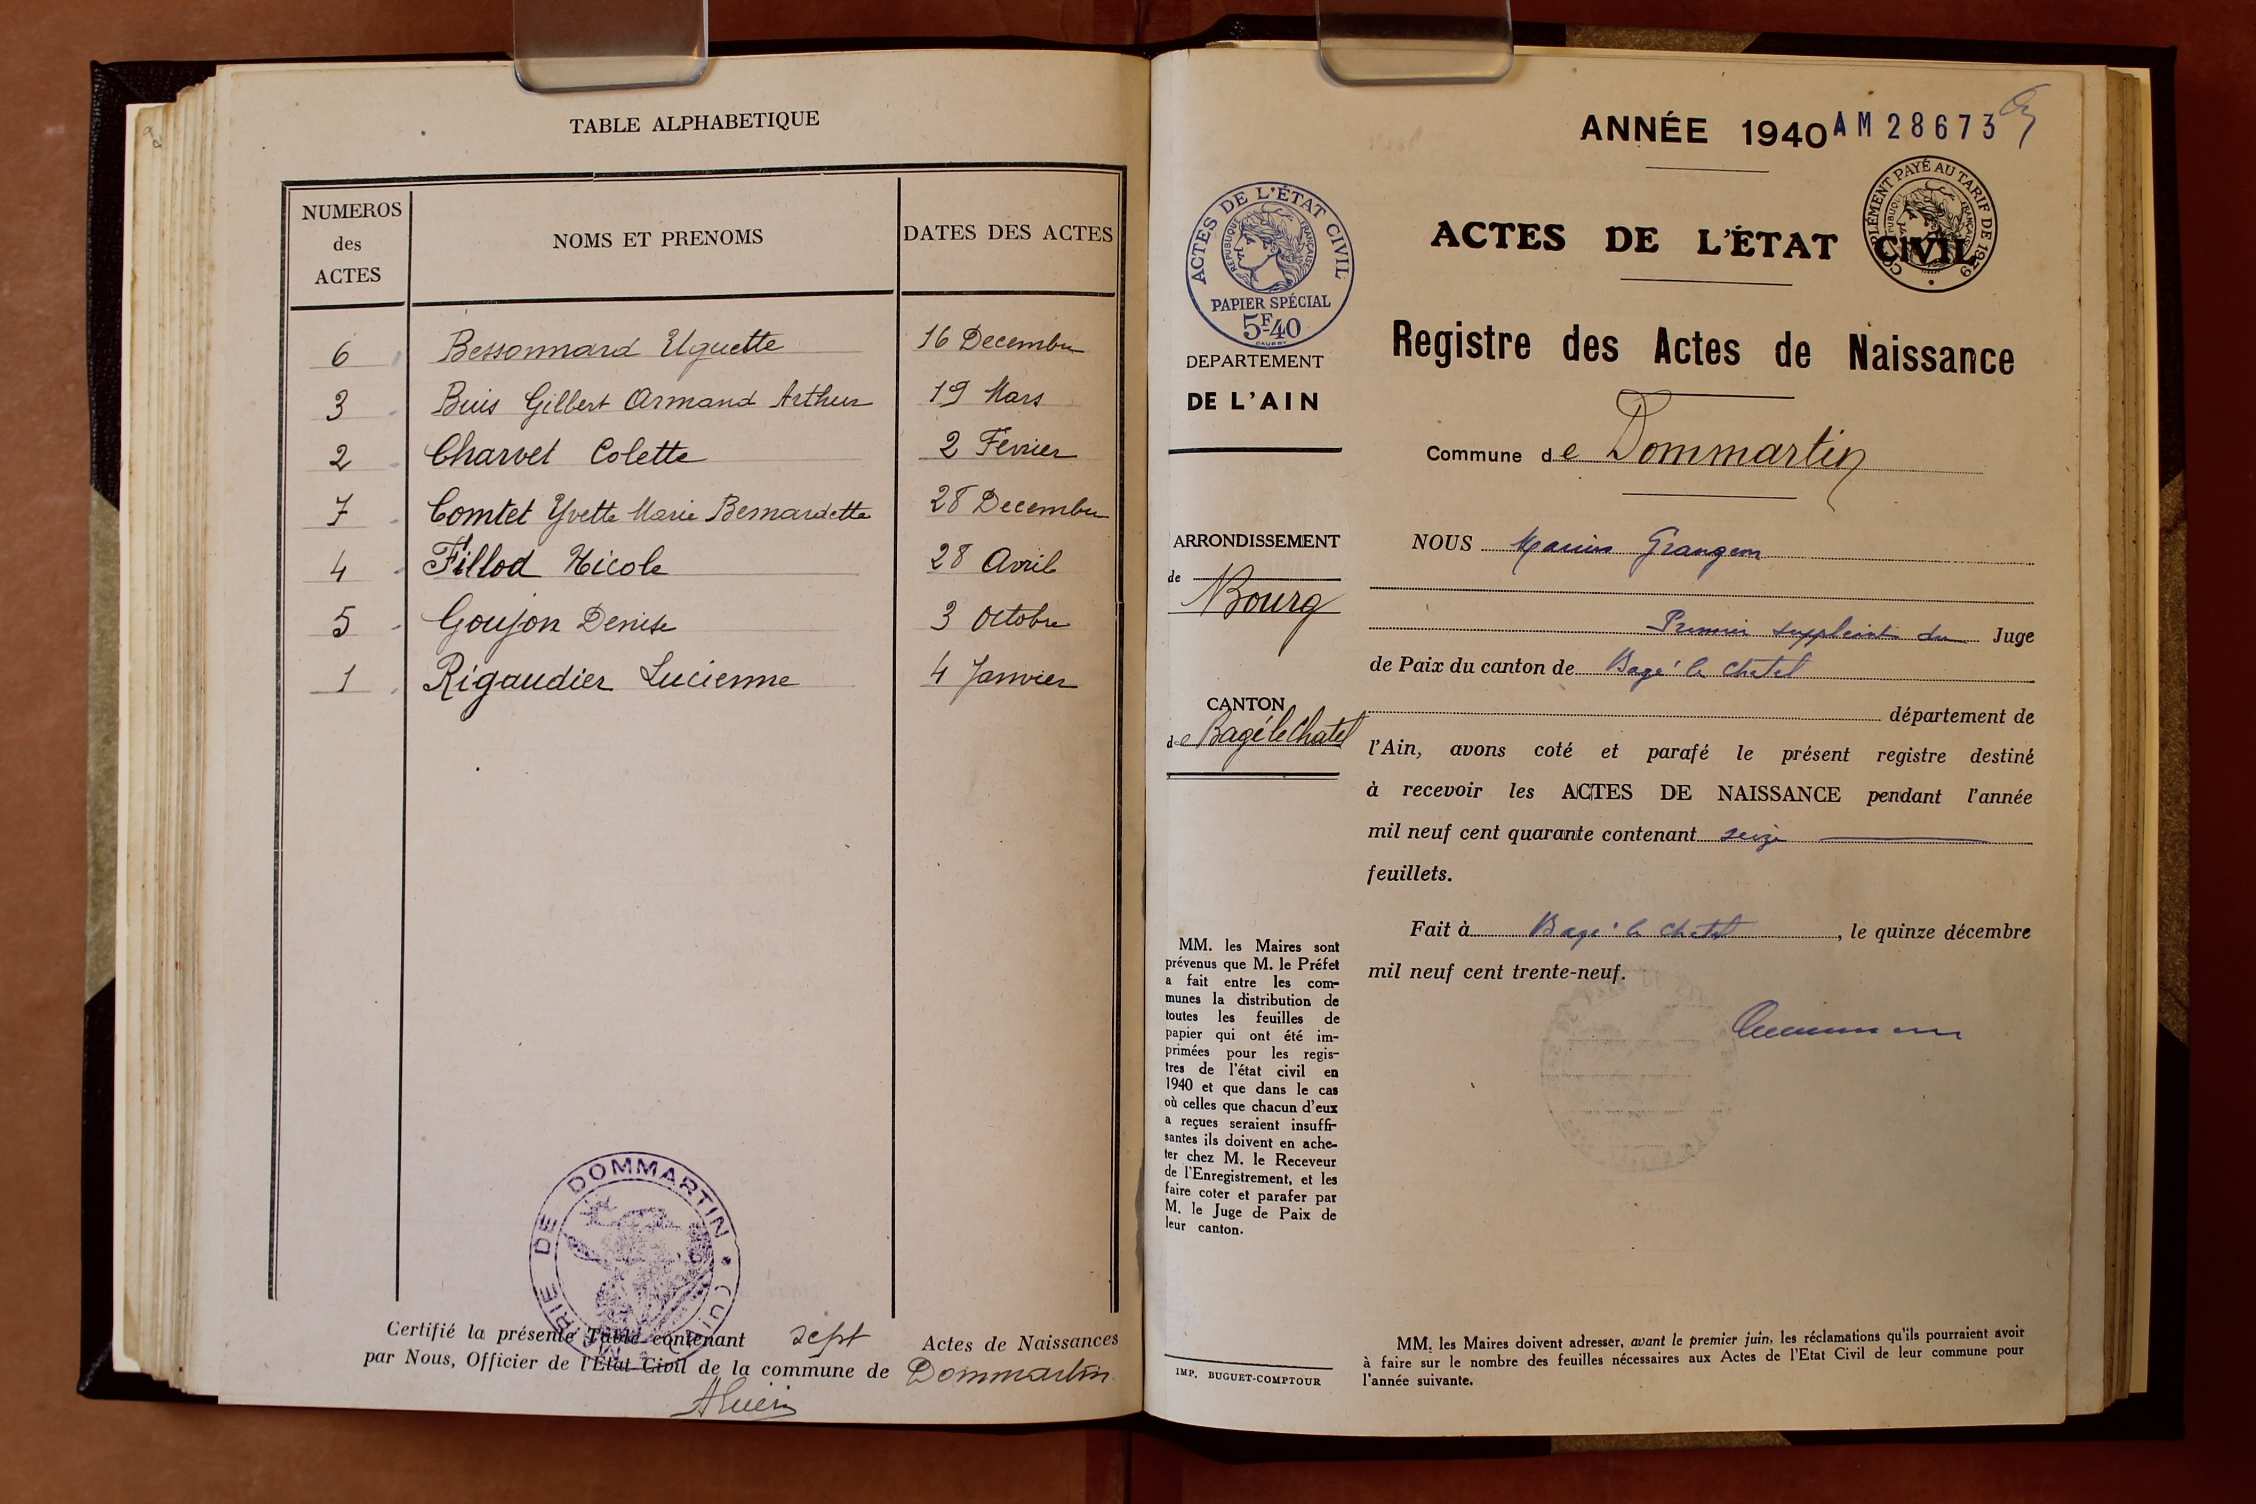 TABLE ALPHABETIQUE
NUMEROS
des
ACTES
NOMS ET PRENOMS
DATES DES ACTES
6 Bessonnard Uguette 16 Decembre
3 Buis Gilbert Armand Arthur 19 Mars
2 Charvet Colette 2 Fevrier
7 Comtet Yvette Marie Bernardette 28 Decembre
4 Fillod Nicole 28 Avril
5 Goujon Denise 3 Octobre
1 Rigaudier Lucienne 4 Janvier
MAIRIE DE DOMMARTIN
Certifié la présente Table contenant sept Actes de Naissances
par Nous, Officier de l'Etat Civil de la commune de Dommartin
ANNÉE 1940 AM 28673
ACTES DE L'ÉTAT CIVIL
COMPLÉMENT PAYÉ AU TARIF DE 1939
RÉPUBLIQUE FRANÇAISE
ACTES DE L'ÉTAT CIVIL
RÉPUBLIQUE FRANÇAISE
PAPIER SPÉCIAL
5F40
DEPARTEMENT
DE L'AIN
ARRONDISSEMENT
de
Bourg
CANTON
de Bagé le Chatel
MM. les Maires sont
prévenus que M. le Préfet
a fait entre les com-
munes la distribution de
toutes les feuilles de
papier qui ont été im-
primées pour les regis-
tres de l'état civil en
1940 et que dans le cas
où celles que chacun d'eux
a reçues seraient insuffi-
santes ils doivent en ache-
ter chez M. le Receveur
de l'Enregistrement, et les
faire coter et parafer par
M. le Juge de Paix de
leur canton.
IMP. BUGUET-COMPTOUR
Registre des Actes de Naissance
Commune de Dommartin
NOUS Marius Grangeon
Premier suppléant du Juge
de Paix du canton de Bagé le Chatel
département de
l'Ain, avons coté et parafé le présent registre destiné
à recevoir les ACTES DE NAISSANCE pendant l'année
mil neuf cent quarante contenant seize
feuillets.
Fait à Bagé le Chatel, le quinze décembre
mil neuf cent trente-neuf.
MM. les Maires doivent adresser, avant le premier juin, les réclamations qu'ils pourraient avoir
à faire sur le nombre des feuilles nécessaires aux Actes de l'Etat Civil de leur commune pour
l'année suivante.